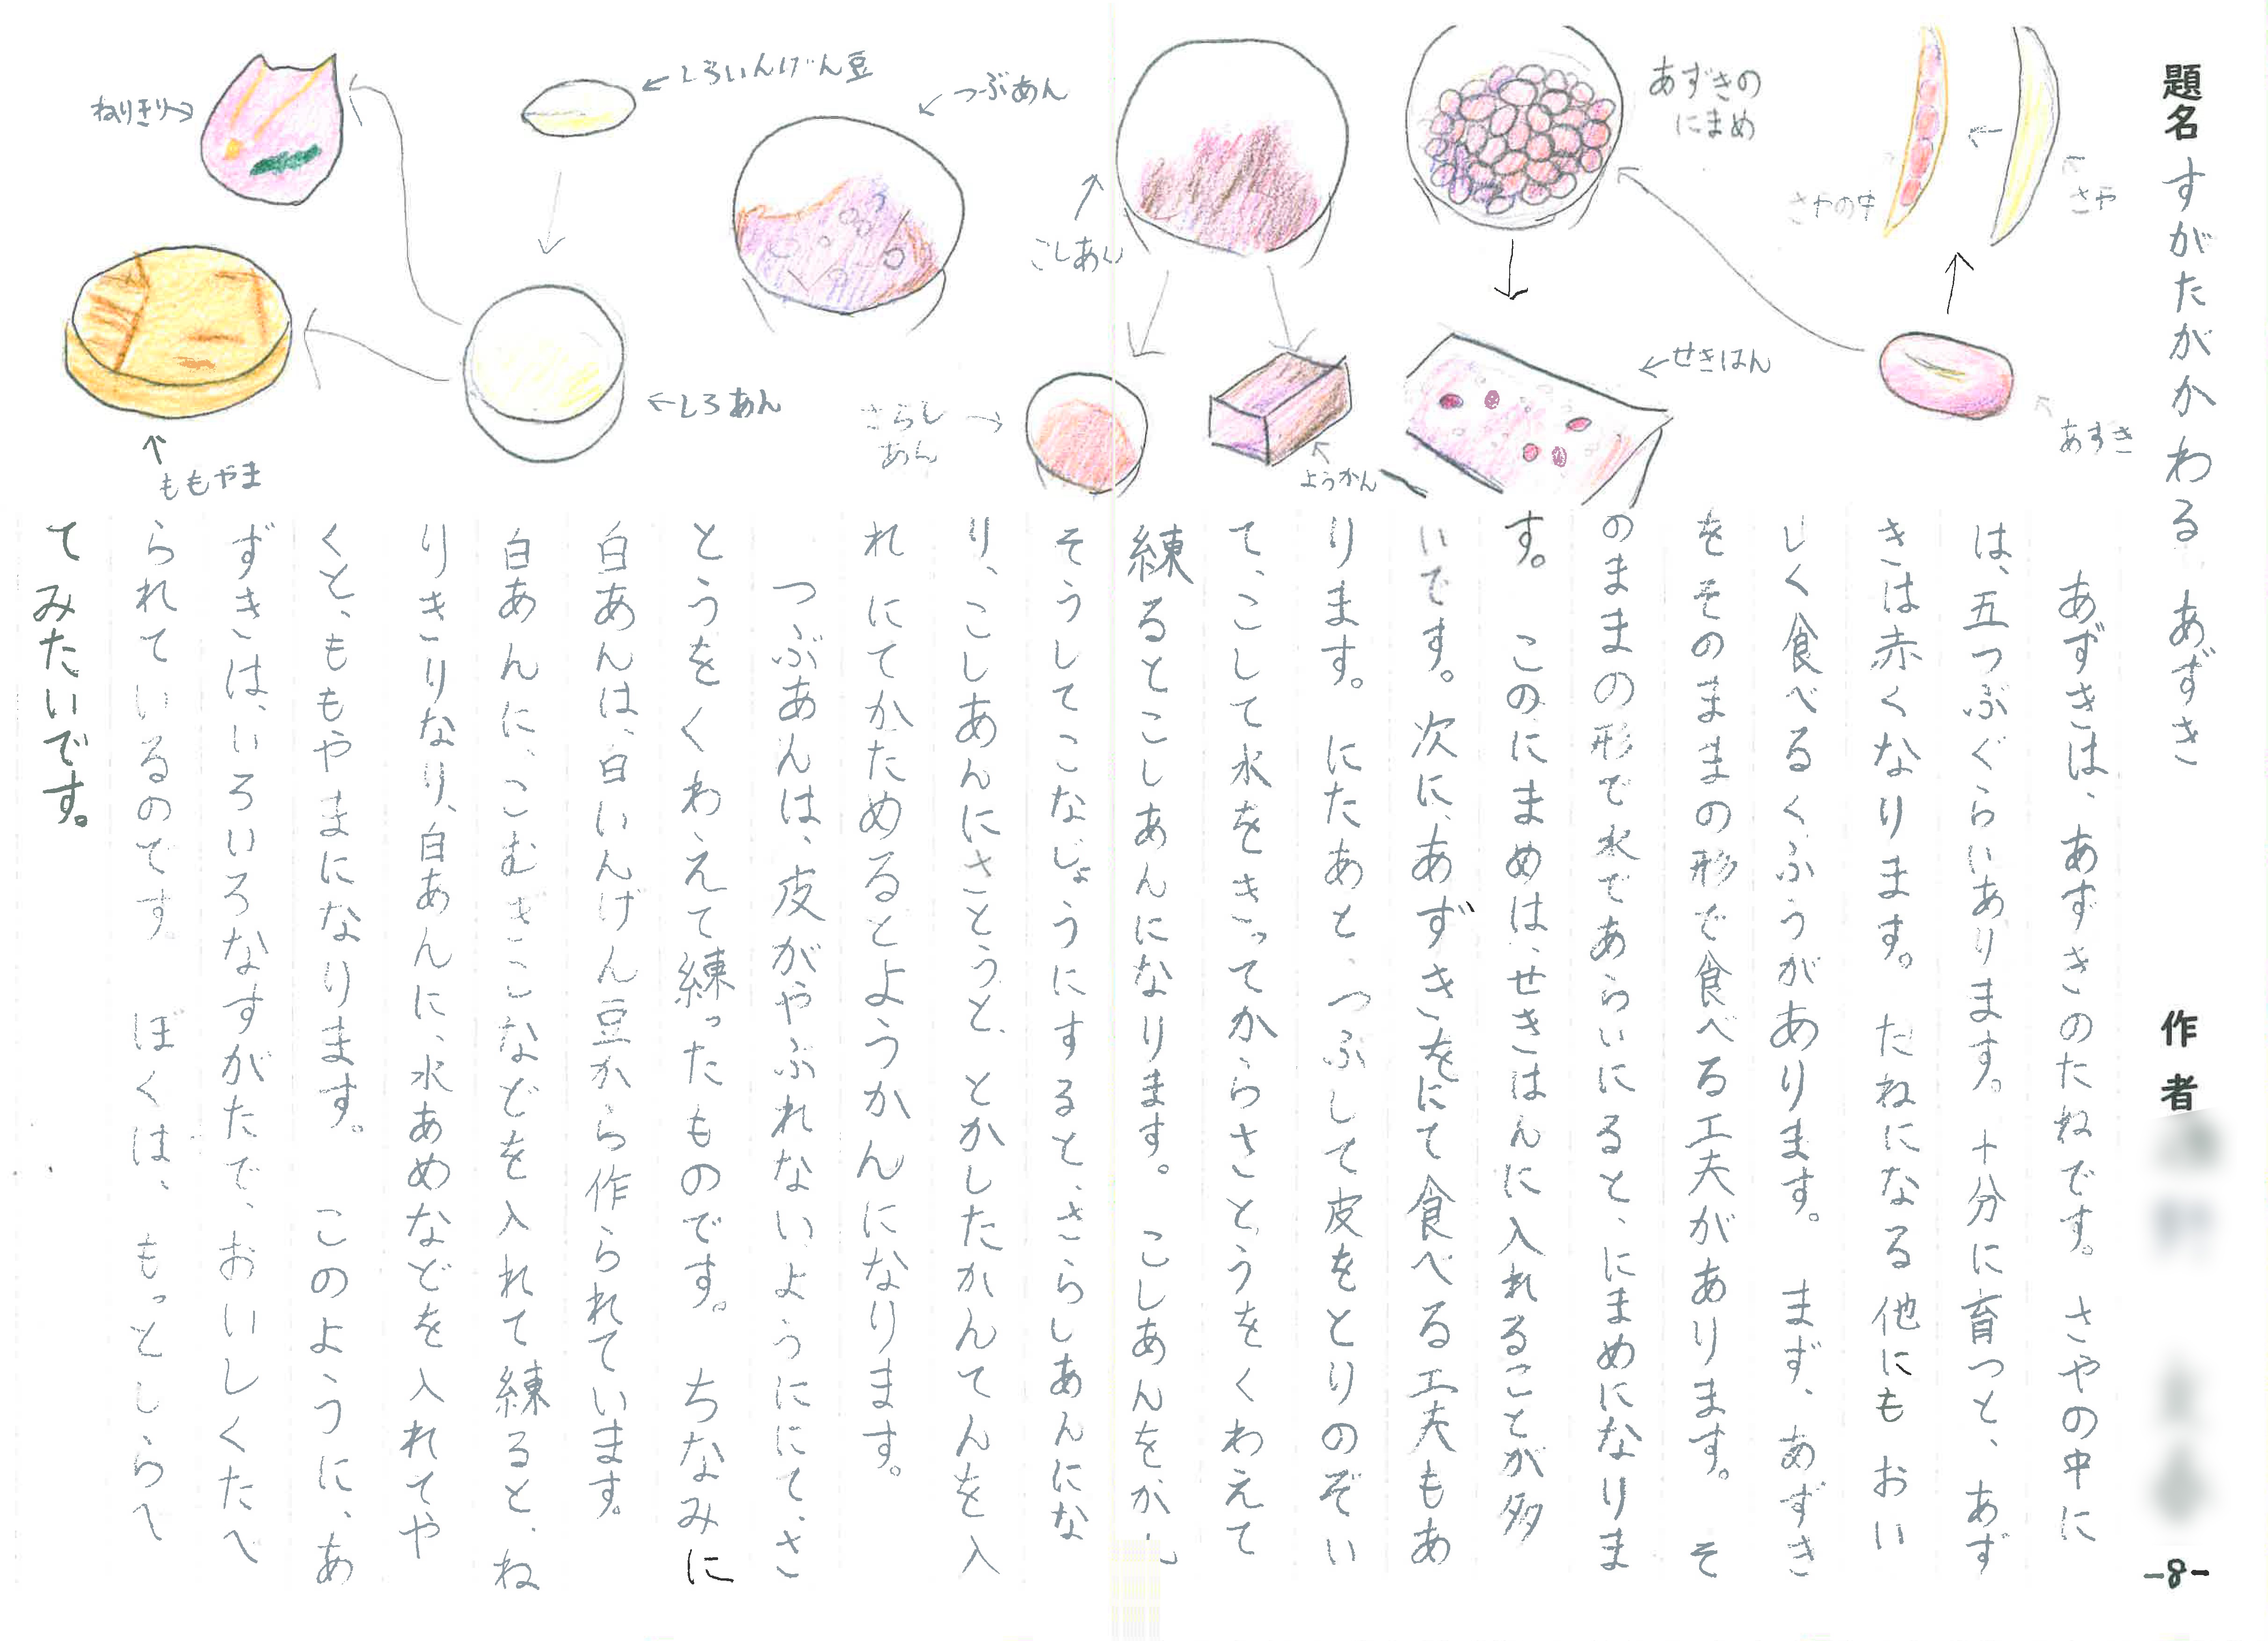 題名 すがたがかわる あずき
作者
-8-
さや
さやの中
あずき
あずきの
にまめ
せきはん
こしあん
ようかん
さらし
あん
つぶあん
しろいんげん豆
しろあん
ねりきり
ももやま
あずきは、あずきのたねです。さやの中に
は、五つぶぐらいあります。十分に育つと、あず
きは赤くなります。たねになる他にもおい
しく食べるくふうがあります。まず、あずき
をそのままの形で食べる工夫があります。そ
のままの形で水であらいにると、にまめになりま
す。このにまめは、せきはんに入れることが多
いです。次に、あずきをにて食べる工夫もあ
ります。にたあと、つぶして皮をとりのぞい
て、こして水をきってからさとうをくわえて
練るとこしあんになります。こしあんをかん
そうしてこなじょうにすると、さらしあんにな
り、こしあんにさとうと、とかしたかんてんを入
れにてかためるとようかんになります。
つぶあんは、皮がやぶれないようににて、さ
とうをくわえて練ったものです。ちなみに
白あんは、白いんげん豆から作られています。
白あんに、こむぎこなどを入れて練ると、ね
りきりなり、白あんに、水あめなどを入れてや
くと、ももやまになります。このように、あ
ずきは、いろいろなすがたで、おいしくたべ
られているのです。ぼくは、もっとしらべ
てみたいです。